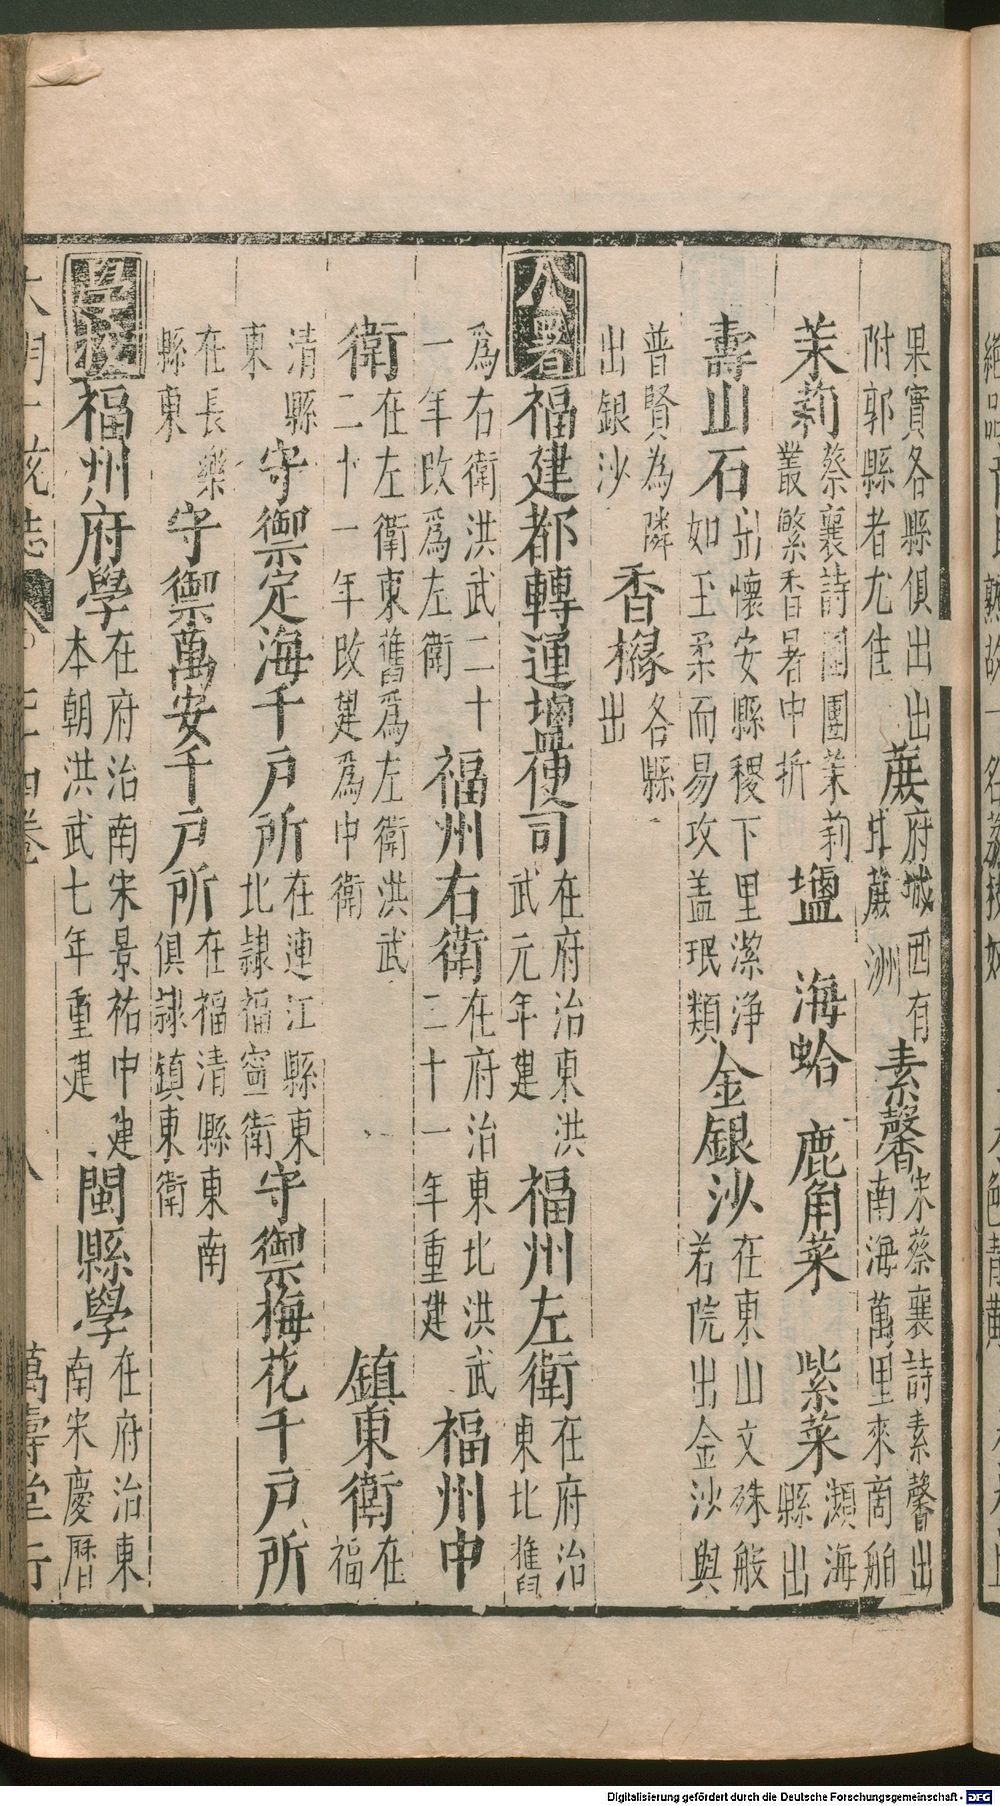 果實各縣俱出出蔗府城西有素馨宋蔡襄詩素馨出
附郭縣者尤佳蔗洲南海萬里來商舶
茉莉蔡襄詩團團茉莉叢繁香暑中折鹽 海蛤 鹿角菜 紫菜瀕海縣出
壽山石出懷安縣稷下里潔淨如玉柔而易攻蓋珉類金銀沙在東山文殊般若院出金沙與
普賢為隣出銀沙香櫞各縣出
公署福建都轉運鹽使司在府治東洪武元年建福州左衛在府治東北舊
為右衛洪武二十一年改為左衛福州右衛在府治東北洪武二十一年重建福州中
衛在左衛東舊為左衛洪武二十一年改建為中衛鎮東衛在福
清縣東守禦定海千戶所在連江縣東北隸福寧衛守禦梅花千戶所
在長樂縣東守禦萬安千戶所在福清縣東南俱隸鎮東衛
學校福州府學在府治南宋景祐中建本朝洪武七年重建閩縣學在府治東南宋慶曆
大明一統志 卷 八 萬壽堂刊
Digitalisierung gefördert durch die Deutsche Forschungsgemeinschaft - DFG